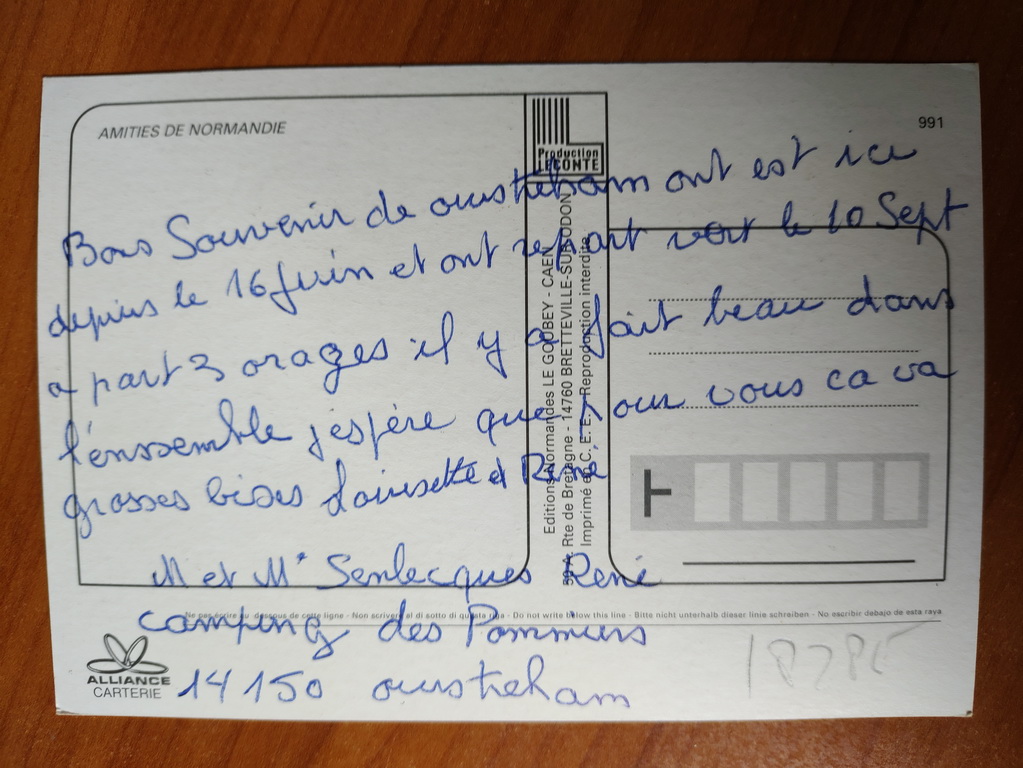 AMITIES DE NORMANDIE
Production
LECONTE
991
Bons Souvenir de ouistreham ont est ici
depuis le 16 Juin et ont repart vert le 10 Sept
a part 3 orages il y a fait beau dans
l'enssemble j'espère que pour vous ca va
grosses bises Louisette et René
M et Mᵉ Senlecques René
camping des Pommiers
14150 ouistreham
Editions Normandes LE GOUBEY - CAEN
Rte de Bretagne - 14760 BRETTEVILLE-SUR-ODON
Imprimé en C.E.E. - Reproduction interdite
Ne pas écrire au dessous de cette ligne - Non scrivere al di sotto di questa riga - Do not write below this line - Bitte nicht unterhalb dieser linie schreiben - No escribir debajo de esta raya
ALLIANCE
CARTERIE